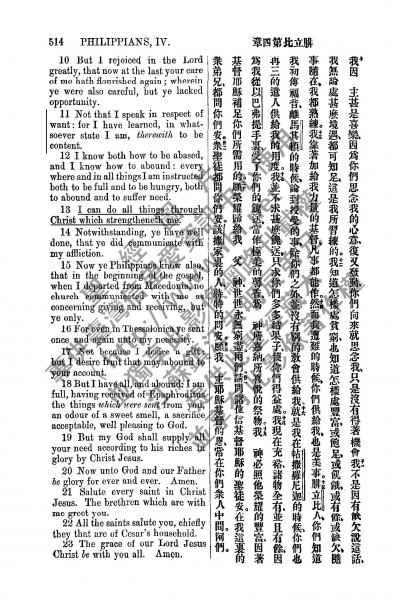 514 PHILIPPIANS, IV.
10 But I rejoiced in the Lord
greatly, that now at the last your care
of me hath flourished again; wherein
ye were also careful, but ye lacked
opportunity.
11 Not that I speak in respect of
want: for I have learned, in what-
soever state I am, therewith to be
content.
12 I know both how to be abased,
and I know how to abound: every
where and in all things I am instructed
both to be full and to be hungry, both
to abound and to suffer need.
13 I can do all things through
Christ which strengtheneth me.
14 Notwithstanding, ye have well
done, that ye did communicate with
my affliction.
15 Now ye Philippians know also,
that in the beginning of the gospel,
when I departed from Macedonia, no
church communicated with me as
concerning giving and receiving, but
ye only.
16 For even in Thessalonica ye sent
once and again unto my necessity.
17 Not because I desire a gift:
but I desire fruit that may abound to
your account.
18 But I have all, and abound: I am
full, having received of Epaphroditus
the things which were sent from you,
an odour of a sweet smell, a sacrifice
acceptable, well pleasing to God.
19 But my God shall supply all
your need according to his riches in
glory by Christ Jesus.
20 Now unto God and our Father
be glory for ever and ever. Amen.
21 Salute every saint in Christ
Jesus. The brethren which are with
me greet you.
22 All the saints salute you, chiefly
they that are of Cesar's household.
23 The grace of our Lord Jesus
Christ be with you all. Amen.
腓立比第四章
我因 主甚是喜樂因爲你們思念我的心當復又發動你們向來就思念我只是沒有得著機會我不是因有缺欠說這話
我無論處甚麼境遇都可知足這是我所習練的我知道怎樣處貧窮也知道怎樣處豐富或飽足或飢餓或有餘或缺欠隨
事隨在我都熟練我靠著加給我力量的基督凡事都能作然而我遭難的時候你們供給我也是美事腓立比人你們知道
我初傳福音離馬其頓的時候論到授受的事除你們之外並沒有別的教會供給我就是我在帖撒羅尼迦的時候你們也
再三的遣人供給我的用度我並不求甚麼餽送只求你們多多結果子使你們得益處我現在充裕諸物全有並且有餘因
爲我從以巴弗提手裏受了你們的餽送當作極香的馨香祭 神所悅納所喜歡的祭物我 神必照他榮耀的豐富因著
基督耶穌補足你們所需用的願榮耀歸給我 父 神世世無窮亞們請問諸位信基督耶穌的聖徒安在我這裏的
衆弟兄都問你們安衆聖徒都問你們安該撒家裏的人特特的問安願我 主耶穌基督的恩常在你們衆人中間阿們